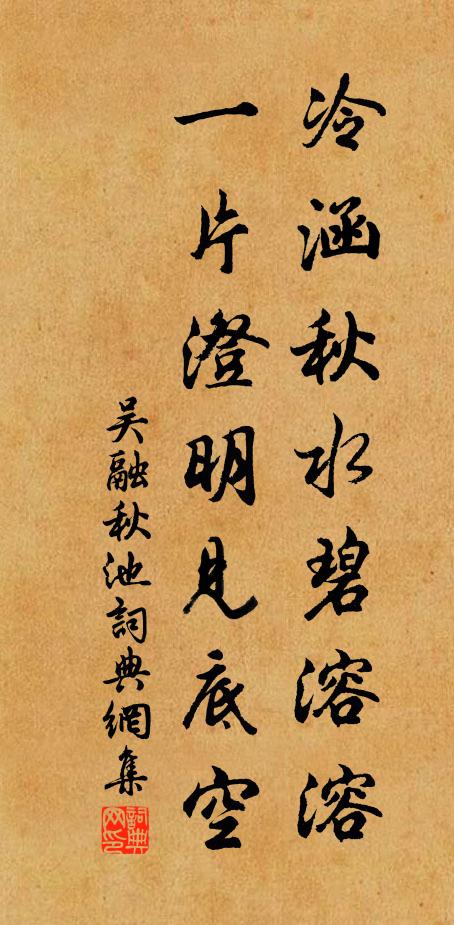 冷涵秋水碧溶溶
一片澄明見底空
吳融秋池詞典網集
詞典网印